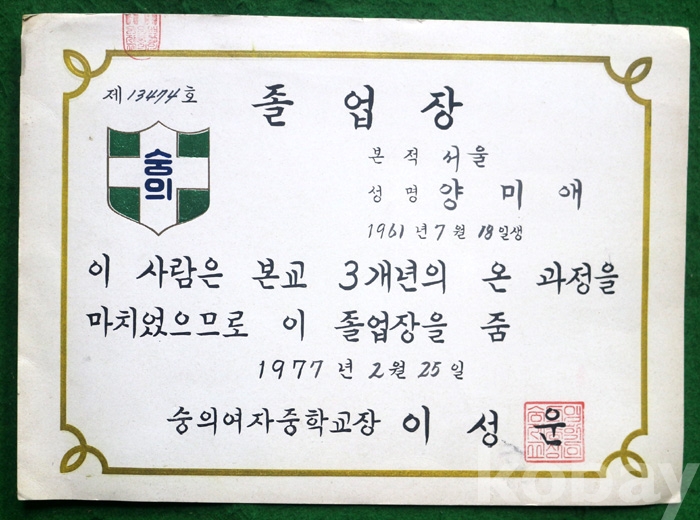 제 13474호
졸업장
숭의
본적 서울
성명 양미애
1961년 7월 18일생
이 사람은 본교 3개년의 온 과정을
마치었으므로 이 졸업장을 줌
1977년 2월 25일
숭의여자중학교장 이성운
kobay